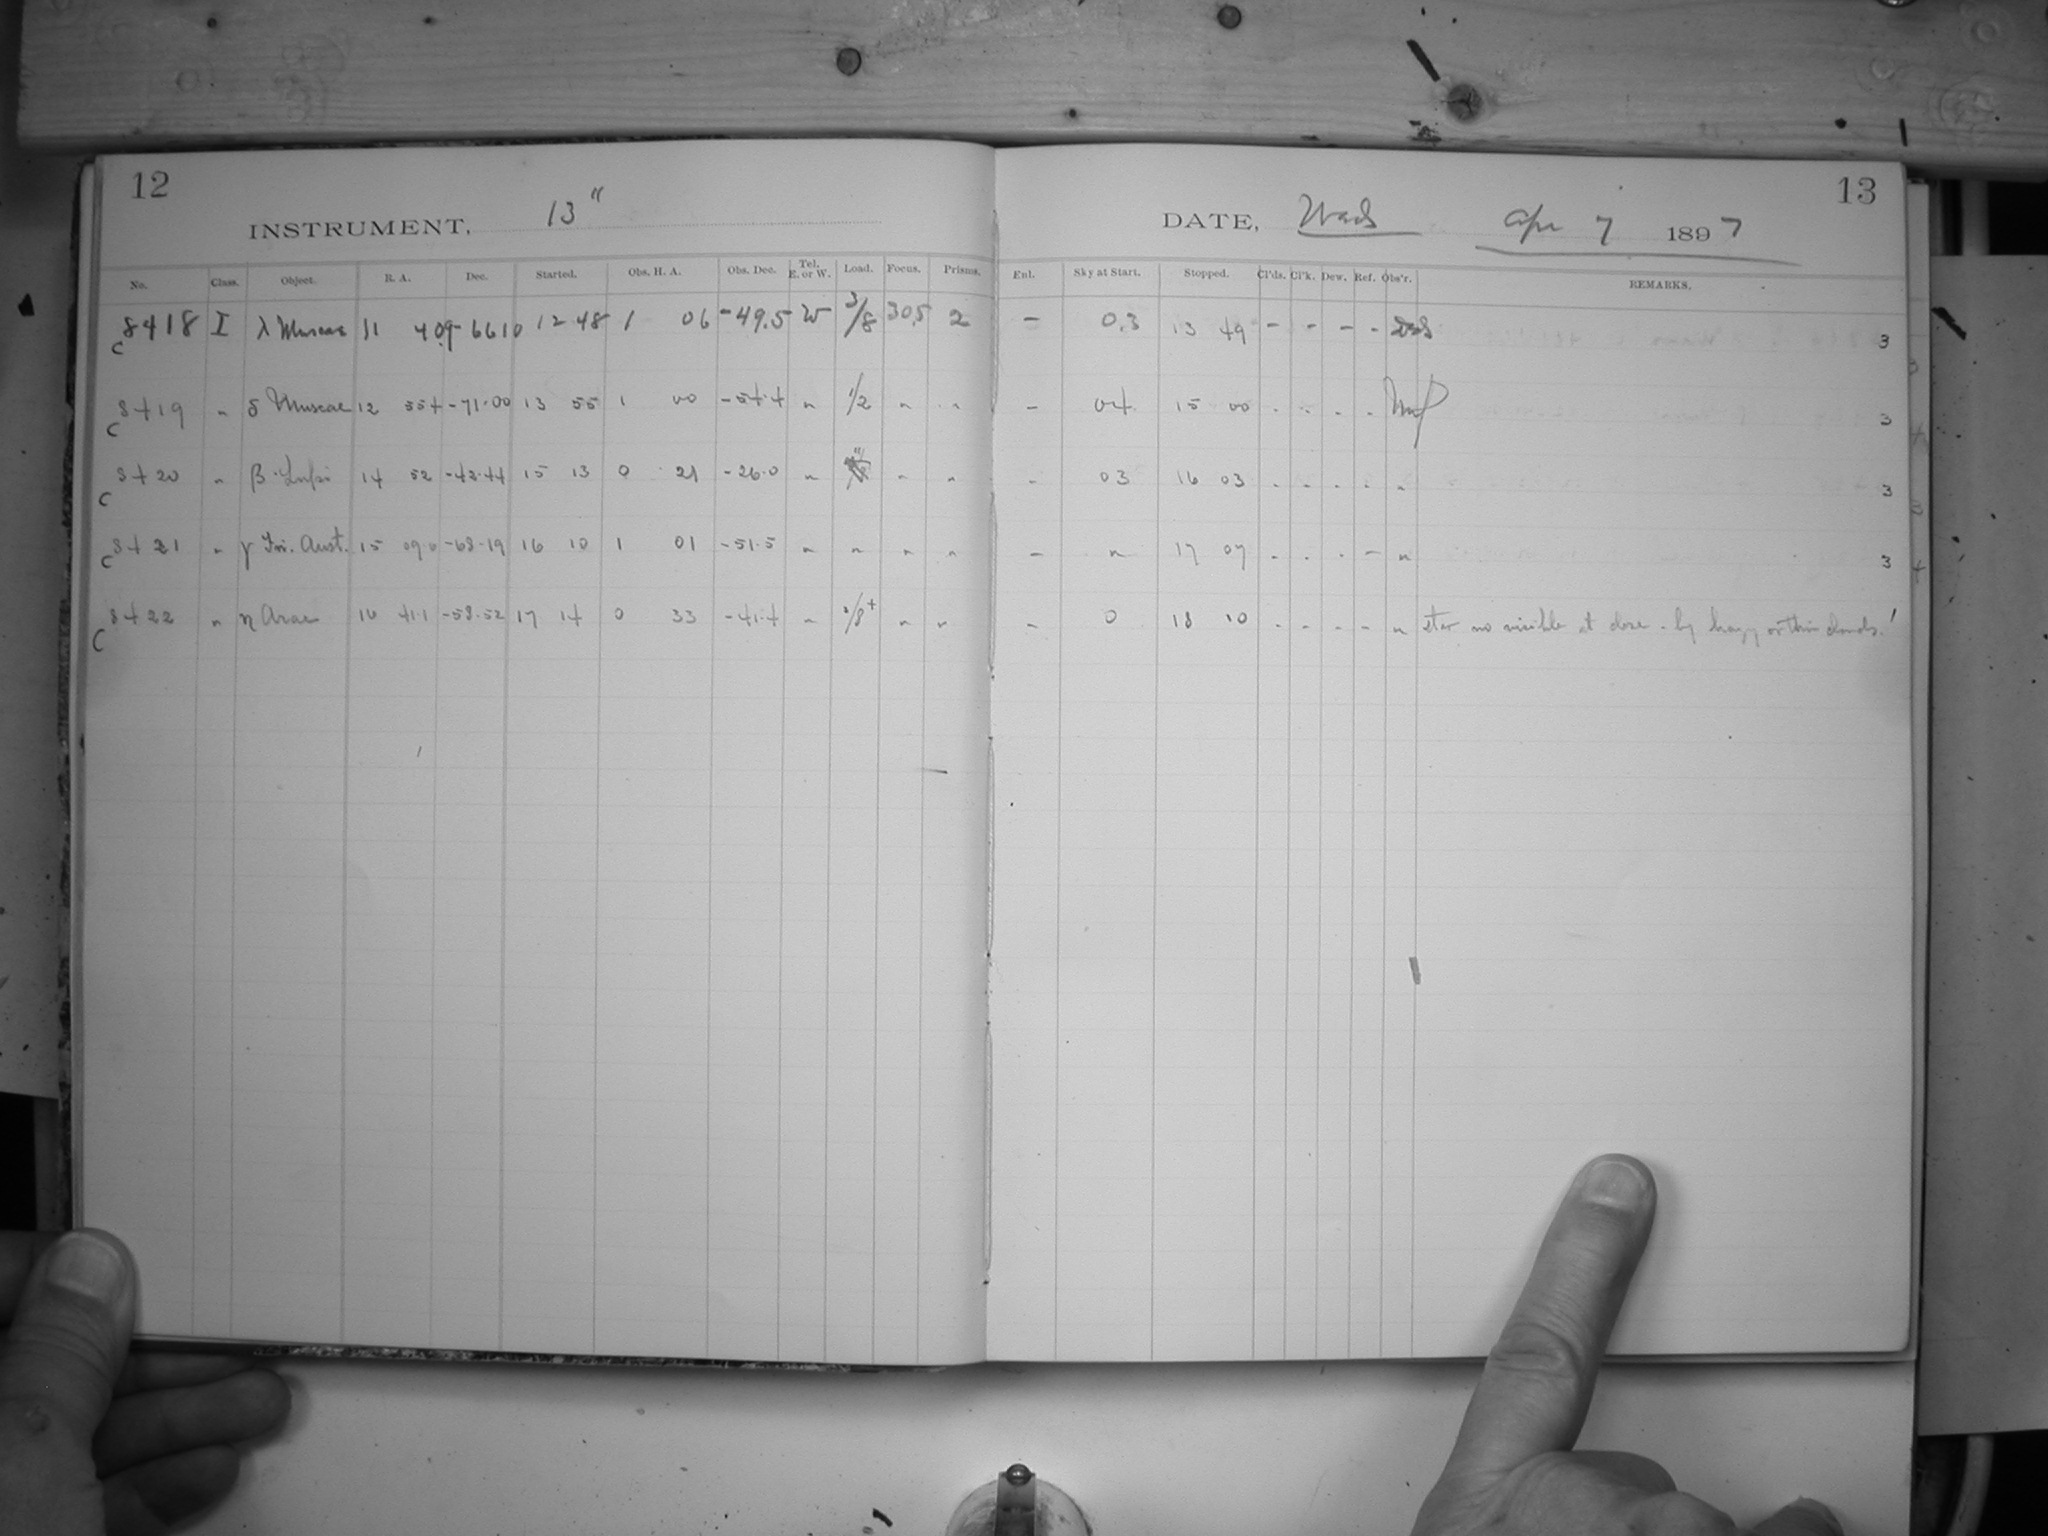 12
INSTRUMENT, 13"
No. Class. Object. R. A. Dec. Started. Obs. H. A. Obs. Dec. Tel. E. or W. Load. Focus. Prisms.
C 8418 I λ Muscae 11 40.9 -66 10 12 48 1 06 -49.5 W 3/8 30.5 2
C 8419 " δ Muscae 12 55.4 -71.00 13 55 1 00 -54.4 " 1/2 " "
C 8420 " β Lupi 14 52 -42.44 15 13 0 21 -26.0 " " "
C 8421 " γ Tri. Aust. 15 09.0 -68.19 16 10 1 01 -51.5 " " " "
C 8422 " η Arae 16 41.1 -58.52 17 14 0 33 -41.4 " 3/8+ " "
13
DATE, Weds Apr 7 1897
Enl. Sky at Start. Stopped. Cl'ds. Cl'k. Dew. Ref. Obs'r. REMARKS.
- 0.3 13 49 - - - - 3
- 04 15 00 - - - - 3
- 03 16 03 - - - - " 3
- " 17 07 - - - - " 3
- 0 18 10 - - - - " star no visible at close - by hazy or thin clouds. 1